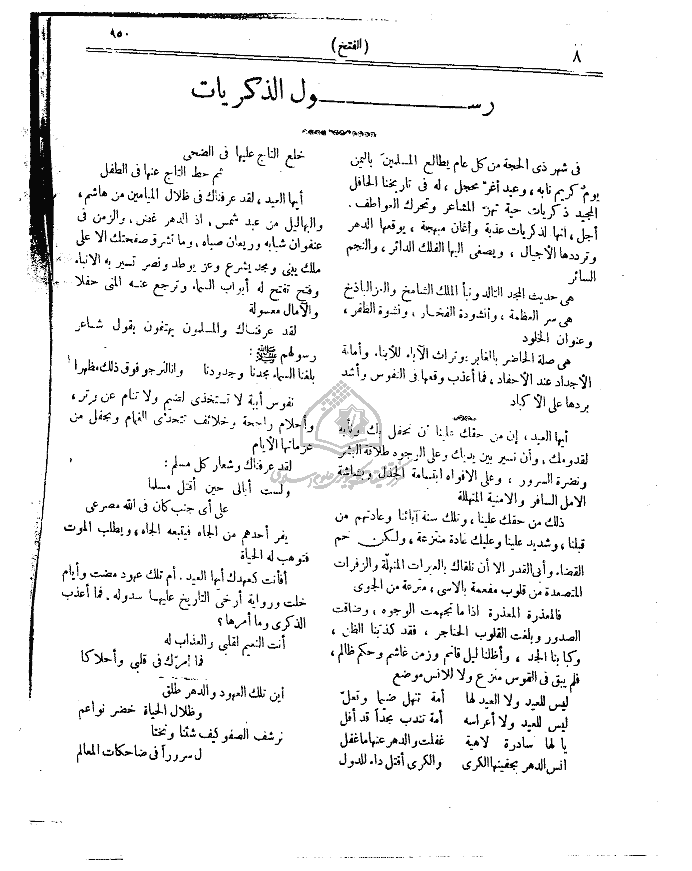 ٨
(الفتح)
٩٥٠
رسول الذكريات
فى شهر ذى الحجة من كل عام يطالع المسلمين باليمن
يوم كريم نابه، وعيد أغر محجل، له فى تاريخنا الحافل
المجيد ذكريات حية تهز المشاعر وتحرك العواطف.
أجل، انها لذكريات عذبة وأغان مبهجة، يوقعها الدهر
وترددها الأجيال، ويصغى اليها الفلك الدائر، والنجم
السائر
هى حديث المجد التالد ونبأ الملك الشامخ والعز الباذخ
هى سر العظمة، وأنشودة الفخار، ونشوة الظفر،
وعنوان الخلود
هى صلة الحاضر بالغابر وتراث الآباء للأبناء وأمانة
الأجداد عند الأحفاد، فما أعذب وقعها فى النفوس وأشد
بردها على الأكباد
أيها العيد، إن من حقك علينا أن نحفل بك ونأبه
لقدومك، وأن نسير بين يديك وعلى الوجوه طلاقة البشر
ونضرة السرور، وعلى الافواه ابتسامة الجذل وبشاشة
الامل السافر والامنية المتهللة
ذلك من حقك علينا، وتلك سنة آبائنا وعادتهم من
قبلنا، وشديد علينا وعليك عادة منتزعة، ولكن حم
القضاء وأبى القدر الا أن نلقاك بالعبرات المنهلة والزفرات
المتصعدة من قلوب مفعمة بالاسى، مترعة من الجوى
فالمعذرة المعذرة اذا ما تجهمت الوجوه، وضاقت
الصدور وبلغت القلوب الحناجر، فقد كذبتنا الظن،
وكبا بنا الجد، وأظلنا ليل قاتم وزمن غاشم وحكم ظالم،
فلم يبق فى القوس منزع ولا للانس موضع
ليس للعيد ولا العيد لها أمة تنهل ضيما وتعلّ
ليس للعيد ولا أعراسه أمة تندب مجداً قد أفل
يا لها سادرة لاهية غفلت والدهر عنها ما غفل
انس الدهر بجفنيها الكرى والكرى أقتل داء للدول
خلع التاج عليها فى الضحى
ثم حط التاج عنها فى الطفل
أيها العيد، لقد عرفناك فى ظلال الميامين من هاشم،
والبهاليل من عبد شمس، اذ الدهر غض، والزمن فى
عنفوان شبابه وريعان صباه، وما تشرق صفحتك الا على
ملك يبنى ومجد يشرع وعز يوطد ونصر تسير به الانباء
وفتح تفتح له أبواب السماء، وترجع عنه المنى حفلا
والآمال معسولة
لقد عرفناك والمسلمون يهتفون بقول شاعر
رسولهم ﷺ:
بلغنا السماء مجدنا وجدودنا وانا لنرجو فوق ذلك مظهرا
نفوس أبية لا تستخذى لضيم ولا تنام عن وتر،
وأحلام راجحة وخلائف تتحدى الغمام ويجفل من
عزماتها الأيام
لقد عرفناك وشعار كل مسلم:
ولست أبالى حين أقتل مسلما
على أى جنب كان فى الله مصرعى
يفر أحدهم من الجاه فيتبعه الجاه، ويطلب الموت
فتوهب له الحياة
أفأنت كعهدك أيها العيد. أم تلك عهود مضت وأيام
خلت ورواية أرخى التاريخ عليها سدوله. فما أعذب
الذكرى وما أمرها؟
أنت النعيم لقلبى والعذاب له
فما أمرّك فى قلبى وأحلاكا
أين تلك العهود والدهر طلق
وظلال الحياة خضر نواعم
نرشف الصفو كيف شئنا ونختا
ل سروراً فى ضاحكات المعالم